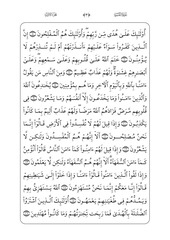 أُوْلَٰٓئِكَ عَلَىٰ هُدًى مِّن رَّبِّهِمْ وَأُوْلَٰٓئِكَ هُمُ ٱلْمُفْلِحُونَ إِنَّ
ٱلَّذِينَ كَفَرُوا۟ سَوَآءٌ عَلَيْهِمْ ءَأَنذَرْتَهُمْ أَمْ لَمْ تُنذِرْهُمْ لَا
يُؤْمِنُونَ خَتَمَ ٱللَّهُ عَلَىٰ قُلُوبِهِمْ وَعَلَىٰ سَمْعِهِمْ وَعَلَىٰٓ
أَبْصَٰرِهِمْ غِشَٰوَةٌ وَلَهُمْ عَذَابٌ عَظِيمٌ وَمِنَ ٱلنَّاسِ مَن يَقُولُ
ءَامَنَّا بِٱللَّهِ وَبِٱلْيَوْمِ ٱلْءَاخِرِ وَمَا هُم بِمُؤْمِنِينَ يُخَٰدِعُونَ ٱللَّهَ
وَٱلَّذِينَ ءَامَنُوا۟ وَمَا يَخْدَعُونَ إِلَّآ أَنفُسَهُمْ وَمَا يَشْعُرُونَ فِى
قُلُوبِهِم مَّرَضٌ فَزَادَهُمُ ٱللَّهُ مَرَضًا وَلَهُمْ عَذَابٌ أَلِيمٌۢ بِمَا كَانُوا۟
يَكْذِبُونَ وَإِذَا قِيلَ لَهُمْ لَا تُفْسِدُوا۟ فِى ٱلْأَرْضِ قَالُوٓا۟ إِنَّمَا
نَحْنُ مُصْلِحُونَ أَلَآ إِنَّهُمْ هُمُ ٱلْمُفْسِدُونَ وَلَٰكِن لَّا
يَشْعُرُونَ وَإِذَا قِيلَ لَهُمْ ءَامِنُوا۟ كَمَآ ءَامَنَ ٱلنَّاسُ قَالُوٓا۟ أَنُؤْمِنُ
كَمَآ ءَامَنَ ٱلسُّفَهَآءُ أَلَآ إِنَّهُمْ هُمُ ٱلسُّفَهَآءُ وَلَٰكِن لَّا يَعْلَمُونَ
وَإِذَا لَقُوا۟ ٱلَّذِينَ ءَامَنُوا۟ قَالُوٓا۟ ءَامَنَّا وَإِذَا خَلَوْا۟ إِلَىٰ شَيَٰطِينِهِمْ
قَالُوٓا۟ إِنَّا مَعَكُمْ إِنَّمَا نَحْنُ مُسْتَهْزِءُونَ ٱللَّهُ يَسْتَهْزِئُ بِهِمْ
وَيَمُدُّهُمْ فِى طُغْيَٰنِهِمْ يَعْمَهُونَ أُوْلَٰٓئِكَ ٱلَّذِينَ ٱشْتَرَوُا۟
ٱلضَّلَٰلَةَ بِٱلْهُدَىٰ فَمَا رَبِحَت تِّجَٰرَتُهُمْ وَمَا كَانُوا۟ مُهْتَدِينَ